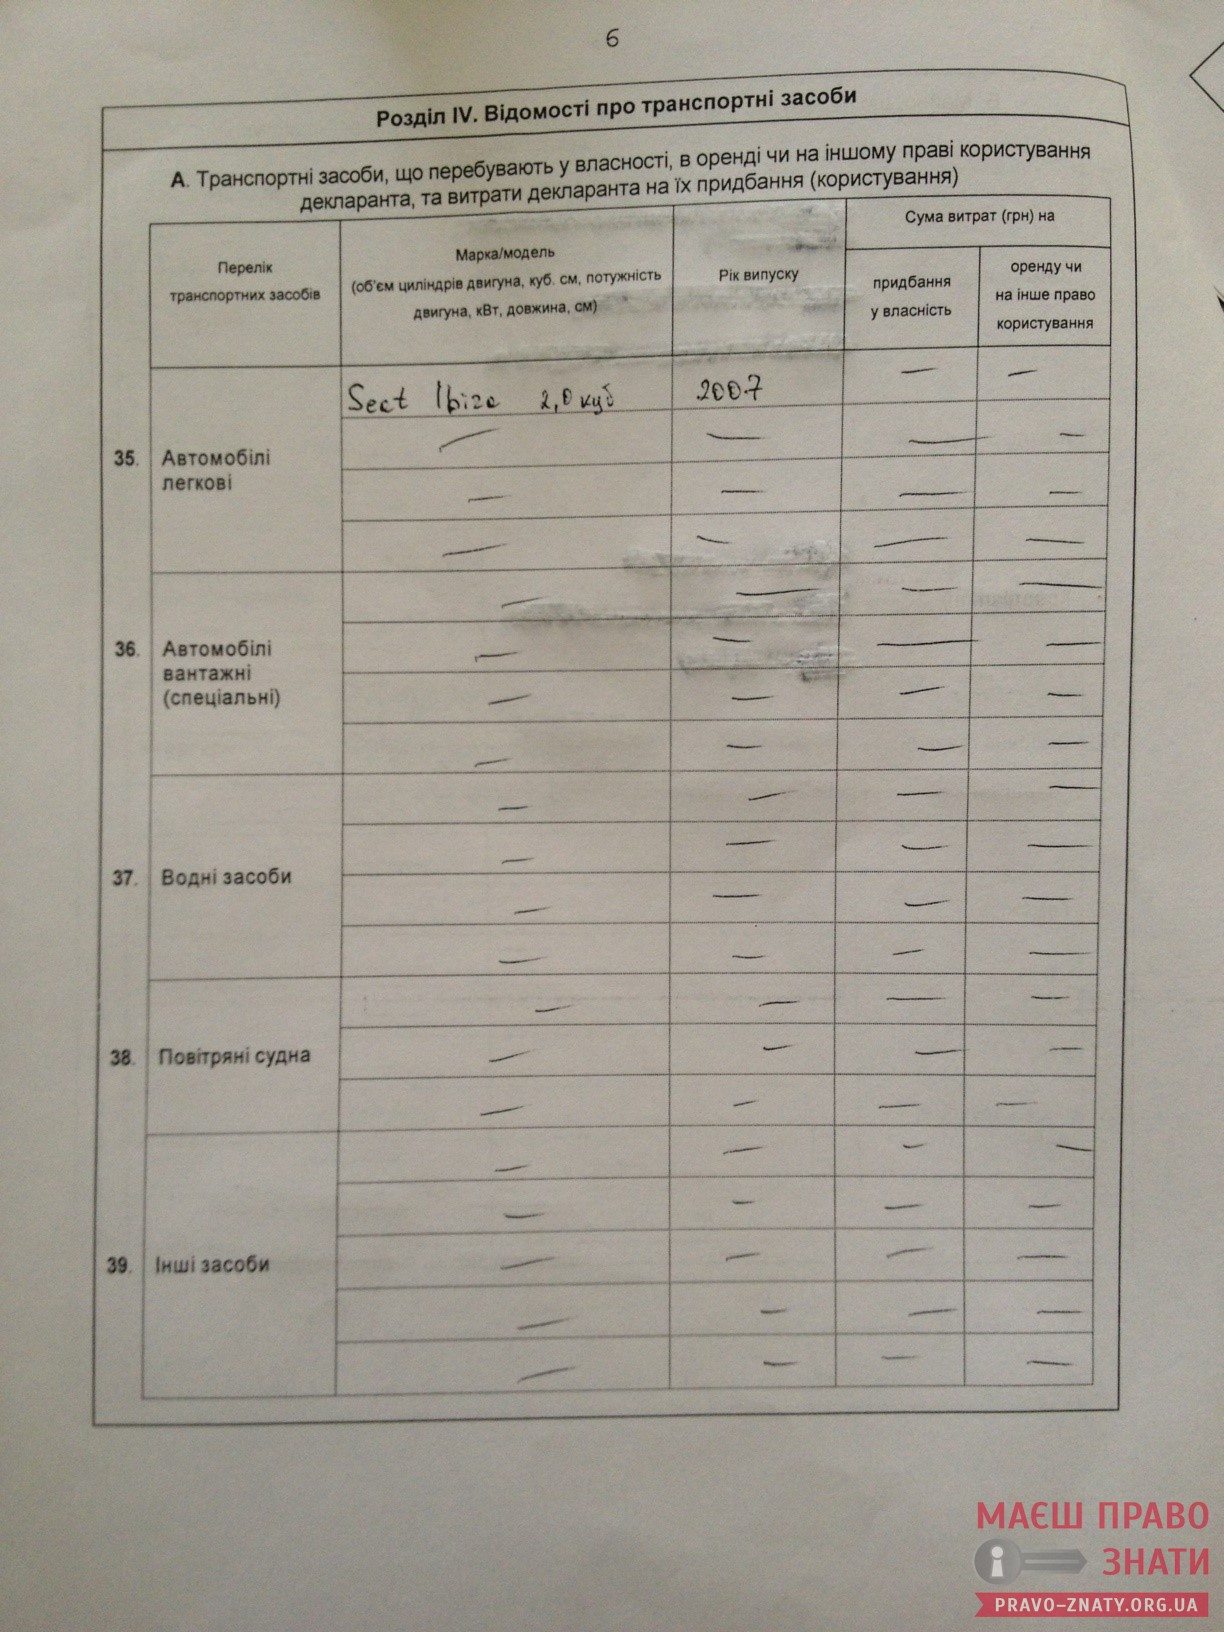 6
Розділ IV. Відомості про транспортні засоби
А. Транспортні засоби, що перебувають у власності, в оренді чи на іншому праві користування
декларанта, та витрати декларанта на їх придбання (користування)
Перелік
транспортних засобів
Марка/модель
(об'єм циліндрів двигуна, куб. см, потужність
двигуна, кВт, довжина, см)
Рік випуску
Сума витрат (грн) на
придбання
у власність
оренду чи
на інше право
користування
35. Автомобілі
легкові
Seat Ibiza 2,0 куб 2007 — —
— — — —
— — — —
— — — —
36. Автомобілі
вантажні
(спеціальні)
— — — —
— — — —
— — — —
— — — —
37. Водні засоби
— — — —
— — — —
— — — —
— — — —
38. Повітряні судна
— — — —
— — — —
— — — —
39. Інші засоби
— — — —
— — — —
— — — —
— — — —
— — — —
МАЄШ ПРАВО
ЗНАТИ
PRAVO-ZNATY.ORG.UA